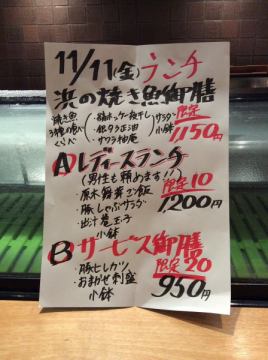 11/11(金)ランチ
浜の焼き魚御膳
焼き魚
3種の食べ
くらべ
・縞ホッケ一夜干し
・銀ダラ正油
・サワラ柚庵
サラダ
小鉢
限定
1,150円
Aレディースランチ
(男性も頼めます!!)
・原木舞茸ご飯
・豚しゃぶサラダ
・出汁巻玉子
小鉢
限定10
1,200円
Bサービス御膳
・豚ヒレカツ
・おまかせ刺盛
小鉢
限定20
950円